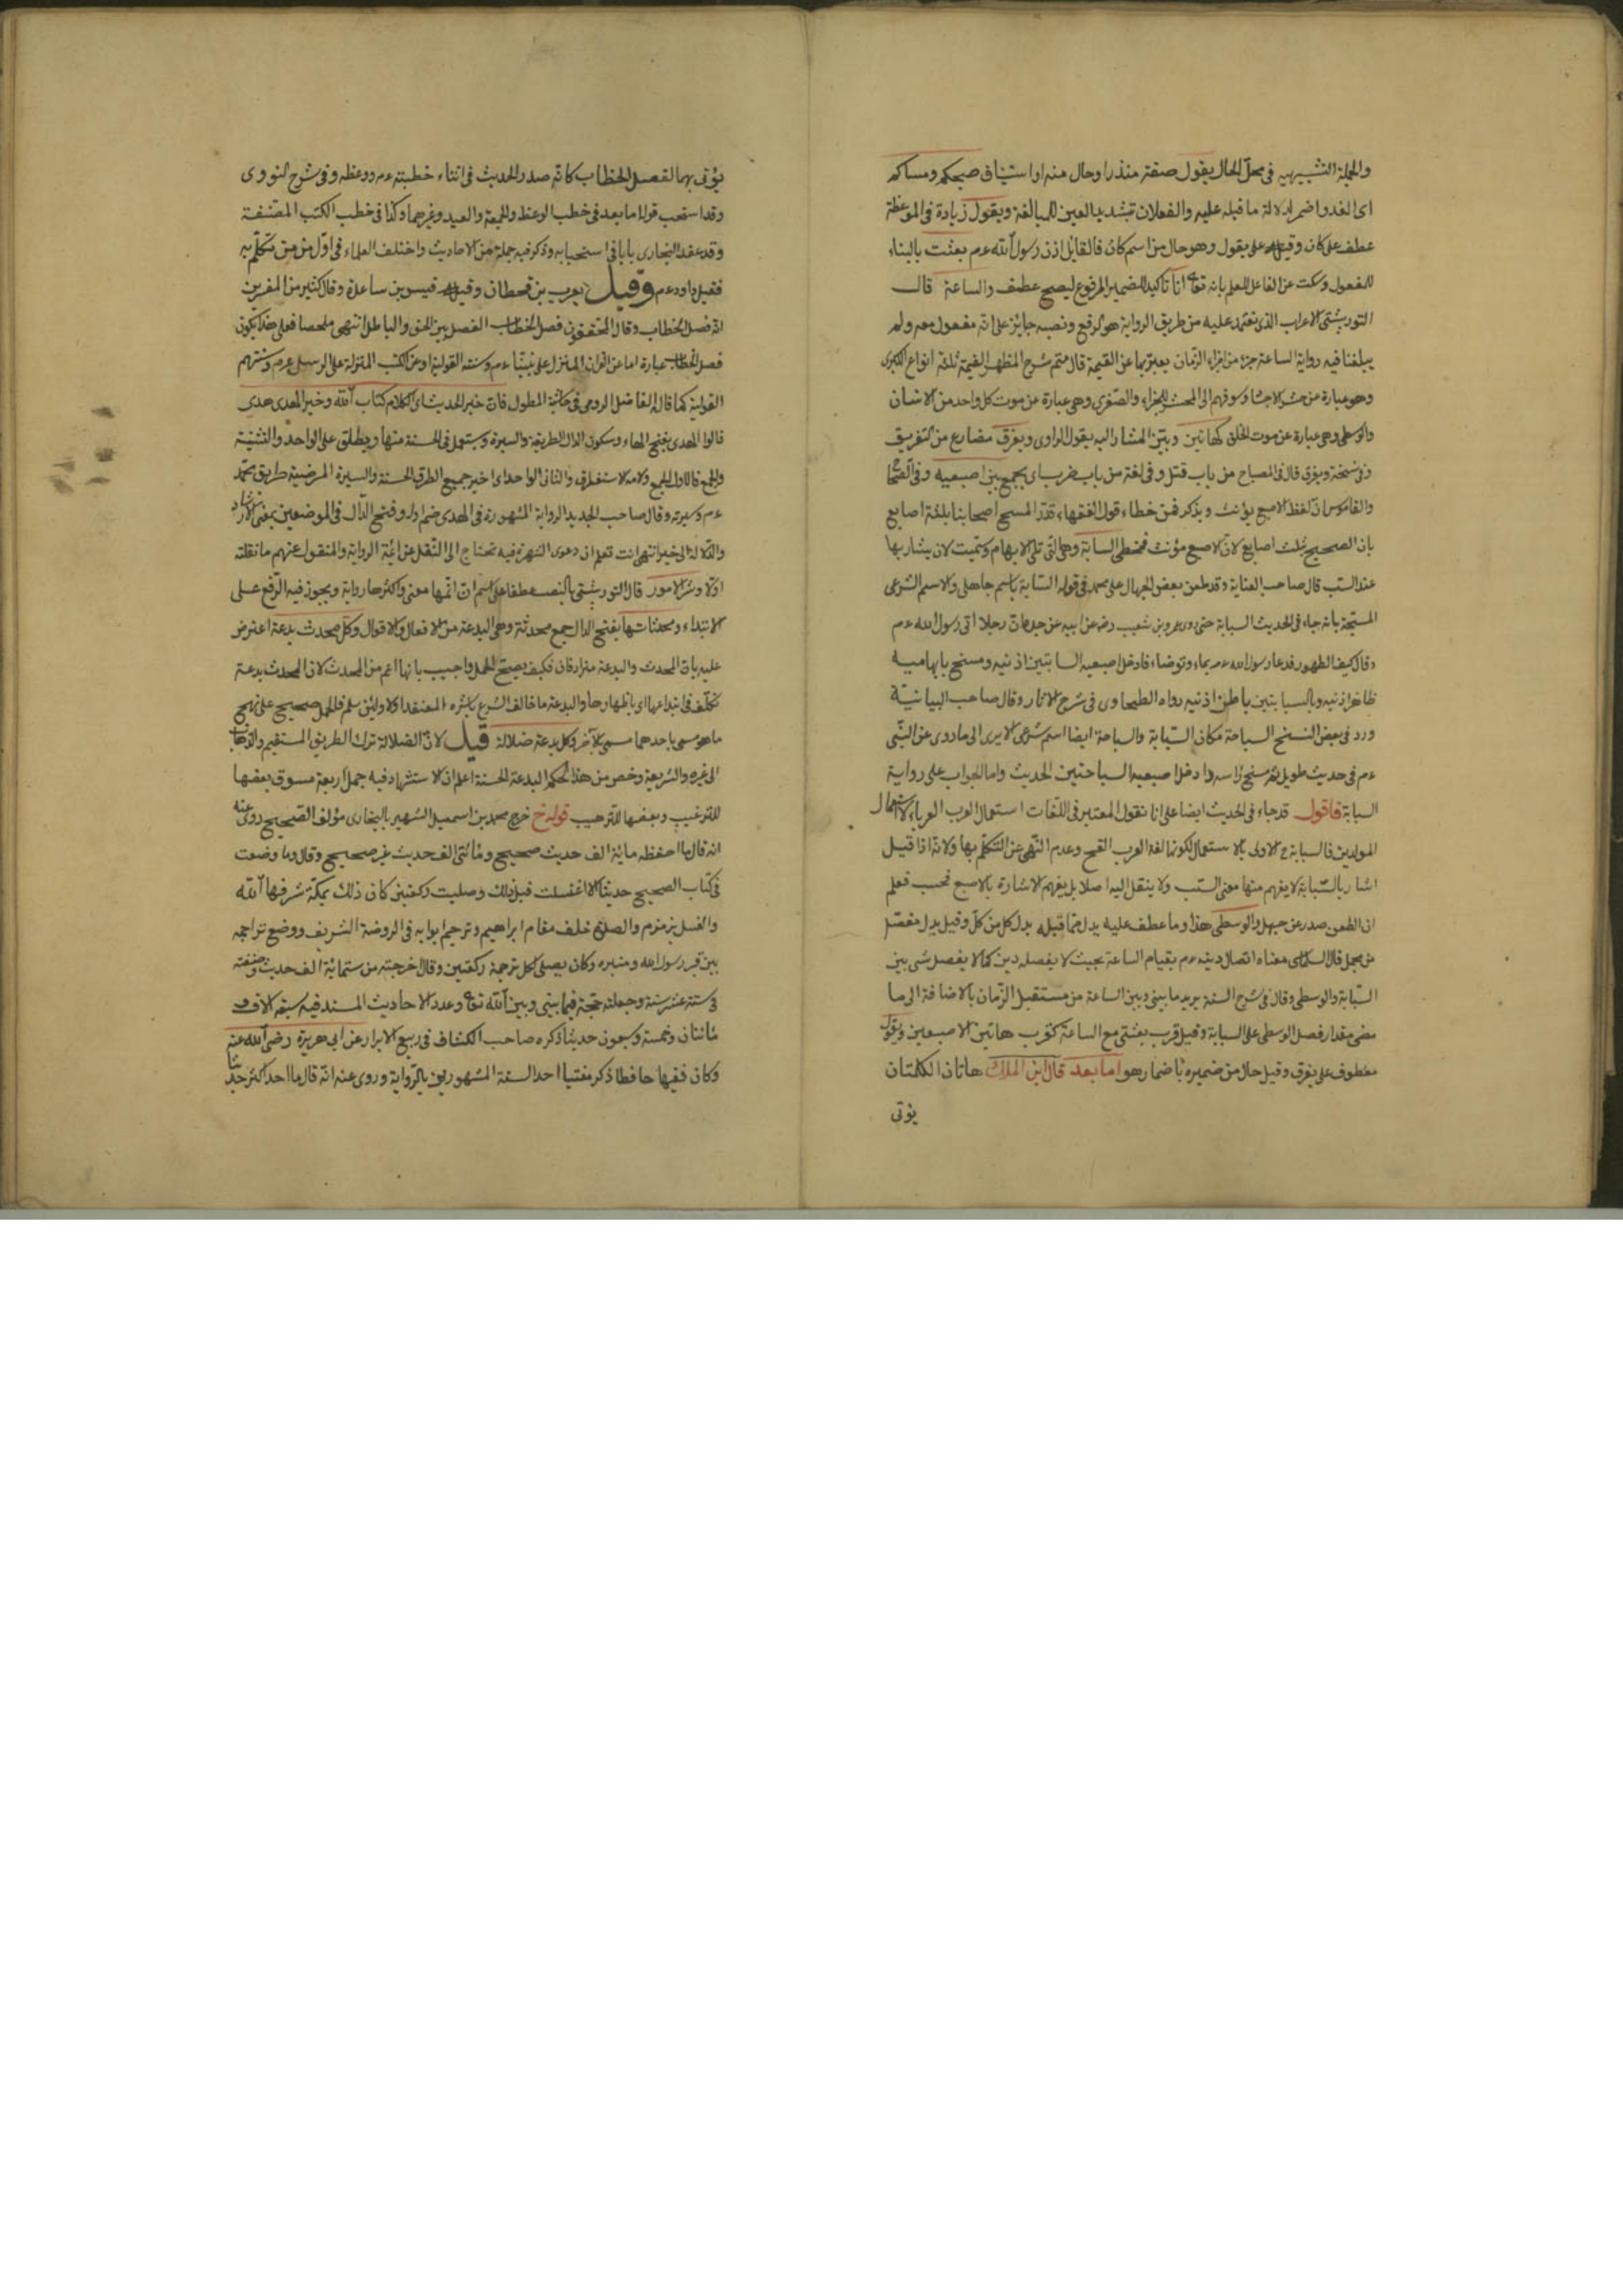 والجملة التشبيهية في محل الحال يقول صفة منذرا وحال منه او استيناف صبحكم ومساكم
اى الغدو اضمر لدلالة ما قبله عليه والفعلان بتشديد العين للمبالغة ويقول زيادة في الموعظة
عطف على كان وقيل على يقول وهو حال من اسم كان فالقايل اذن رسول الله عم بعثت بالبناء
للمفعول وسكت عن الفاعل للعلم بانه تعا انا تاكيد للضمير المرفوع ليصح عطف والساعة قال
التوربشتى الاعراب الذى نعتمد عليه من طريق الرواية هو الرفع ونصبه جايز على انه مفعول معه ولم
يبلغنا فيه رواية الساعة جزء من اجزاء الزمان يعبر بها عن القيمة قال متم شرح المظهر القيمة ثلثة انواع الكبرى
وهو عبارة عن حشر الاجساد وسوقهم الى المحشر للجزاء والصغرى وهى عبارة عن موت كل واحد من الانسان
والوسطى وهى عبارة عن موت الخلق كهاتين وبين المشار اليه بقول الراوى ويفرق مضارع من التفريق
وفي نسخة ويفرق قال في المصباح من باب قتل وفي لغة من باب ضرب اى يجمع بين اصبعيه وفي الصحاح
والقاموس ان لفظ الاصبع يؤنث ويذكر فمن خطاء قول الفقهاء قدر المسح اصحابنا بثلثة اصابع
بان الصحيح ثلث اصابع لان الاصبع مؤنث فمخطى السبابة وهى التى تلى الابهام وسميت لان يشار بها
عند السب قال صاحب العناية وقد طعن بعض الجهال على محمد في قوله السبابة باسم جاهلى والاسم الشرعى
المسبحة بانه جاء في الحديث السبابة حتى روى عمرو بن شعيب رضه عن ابيه عن جده ان رجلا اتى رسول الله عم
وقال كيف الطهور فدعا رسول الله عم بماء وتوضاء فادخل اصبعيه السبابتين اذنيه ومسح بابهاميه
ظاهر اذنيه وبالسبابتين باطن اذنيه رواه الطحاوى في شرح الاثار وقال صاحب البيانية
ورد في بعض النسخ السباحة مكان السبابة والسباحة ايضا اسم شرعى الا يرى الى ما روى عن النبى
عم في حديث طويل ثم مسح راسه وادخل اصبعيه السباحتين الحديث واما الجواب على رواية
السبابة فاقول قد جاء في الحديث ايضا على انا نقول المعتبر في اللغات استعمال العرب العرباء لا استعمال
المولدين فالسبابة ح الاولى بالاستعمال لكونها لغة العرب القح وعدم النهى عن التكلم بها ولانه اذا قيل
اشار بالسبابة لا يفهم منها معنى السب ولا ينتقل اليه اصلا بل يفهم الاشارة بالاصبع فحسب فعلم
ان الطعن صدر عن جهل والوسطى هذا وما عطف عليه بدل مما قبله بدل كل من كل وقيل بدل مفصل
من مجمل قال معناه اتصال دينه عم بقيام الساعة بحيث لا يفصله دين كما لا يفصل شى بين
السبابة والوسطى وقال في شرح السنة يريد ما بينى وبين الساعة من مستقبل الزمان بالاضافة الى ما
مضى مقدار فضل الوسطى على السبابة وقيل قرب بعثتى مع الساعة كقرب هاتين الاصبعين ويقول
معطوف على يفرق وقيل حال من ضميره باضمار هو اما بعد قال ابن الملك هاتان الكلمتان
يؤتى
يؤتى بهما لفصل الخطاب كانه صدر الحديث في اثناء خطبته عم ووعظه وفي شرح النووى
وقد استحب قول اما بعد في خطب الوعظ والجمعة والعيد وغيرهما وكذا في خطب الكتب المصنفة
وقد عقد البخارى بابا في استحبابه وذكر فيه جملة من الاحاديث واختلف العلماء في اول من تكلم به
فقيل داود عم وقيل يعرب بن قحطان وقيل قيس بن ساعدة وقال كثير من المفسرين
انه فصل الخطاب وقال المحققون فصل الخطاب الفصل بين الحق والباطل انتهى ملخصا فعلى هذا يكون
فصل الخطاب عبارة اما عن القران المنزل على نبينا عم وسنته القولية او عن الكتب المنزلة على الرسل عم وسنتهم
القولية كما قال الفاضل الرومى في حاشية المطول فان خير الحديث اى الكلام كتاب الله وخير الهدى هدى
قالوا الهدى بفتح الهاء وسكون الدال الطريقة والسيرة وتستعمل في الحسنة منها ويطلق على الواحد والتثنية
والجمع فالاول للجمع ولامه للاستغراق والثانى للواحد اى خير جميع الطرق الحسنة والسيرة المرضية طريق محمد
عم وسيرته وقال صاحب الجديد الرواية المشهورة في الهدى ضم دار وفتح الدال في الموضعين بمعنى الارشاد
والدلالة الى خير انتهى انت تعلم ان دعوى الشهرة فيه تحتاج الى النقل عن ائمة الرواية والمنقول عنهم ما نقلته
اولا وشر الامور قال التوربشتى بالنصب عطفا على اسم ان اتمها معنى واكثرها رواية ويجوز فيه الرفع على
الابتداء ومحدثاتها بفتح الدال جمع محدثة وهى البدعة من الافعال والاقوال وكل محدث بدعة اعترض
عليه بان المحدث والبدعة مترادفان فكيف يصح الحمل واجيب بانها اعم من المحدث لان المحدث بدعة
تكلف في ابتداعها اى باظهارها والبدعة ما خالف الشرع ولئن سلم فالحمل صحيح على نهج
ما هو مسمى باحدهما مسمى بالآخر وكل بدعة ضلالة قيل لان الضلالة ترك الطريق المستقيم والذهاب
الى غيره والشريعة وخص من هذا الحكم البدعة الحسنة اعلم ان الاستشهاد فيه جمل اربعة مسوق بعضها
للترغيب وبعضها للترهيب قوله خ خرج محمد بن اسمعيل الشهير بالبخارى مؤلف الصحيح روى عنه
انه قال ما احفظه ماية الف حديث صحيح ومائتى الف حديث غير صحيح وقال وما وضعت
في كتاب الصحيح حديثا الا اغتسلت قبل ذلك وصليت ركعتين كان ذلك بمكة شرفها الله
والغسل بزمزم والصلوة خلف مقام ابراهيم وترجم ابوابه في الروضة الشريف ووضع تراجمه
بين قبر رسول الله ومنبره وكان يصلى لكل ترجمة ركعتين وقال خرجته من ستماية الف حديث وصنفته
في ستة عشر سنة وجعلته حجة فيما بينى وبين الله تعا وعدد الاحاديث المسند فيه سبعة الاف
مائتان وخمسة وسبعون حديثا ذكره صاحب الكشاف في ربيع الابرار عن ابى هريرة رضى الله عنه
وكان فقيها حافظا ذكر مفتيا احد الستة المشهورين بالرواية وروى عنه انه قال ما احد اكثر حديثا